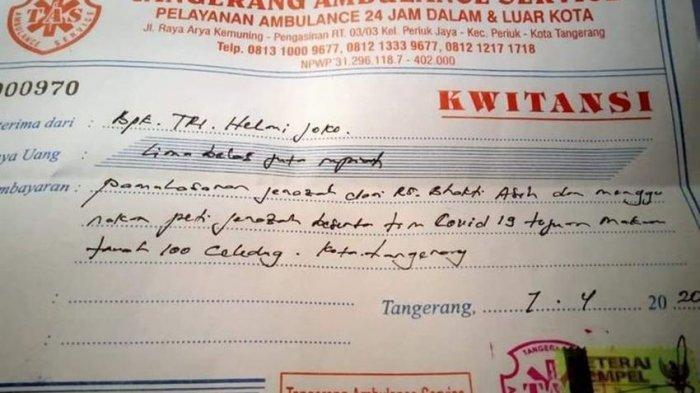 TANGERANG AMBULANCE SERVICE
PELAYANAN AMBULANCE 24 JAM DALAM & LUAR KOTA
Jl. Raya Arya Kemuning - Pengasinan RT. 03/03 Kel. Periuk Jaya - Kec. Periuk - Kota Tangerang
Telp. 0813 1000 9677, 0812 1333 9677, 0812 1217 1718
NPWP 31.296.118.7 - 402.000
TAS
AMBULANCE SERVICE
000970
KWITANSI
erima dari : Bpk. TRI. Helmi Joko.
ya Uang : Lima belas juta rupiah
mbayaran : pamulasaran jenazah dari RS. Bhakti Asih dan menggu
nakan peti jenazah beserta tim Covid 19 tujuan makam
tanah 100 Ciledug. Kota tangerang
Tangerang, 7 . 4 20 20
TANGERA
ETERAI
EMPEL
Tangerang Ambulance Service